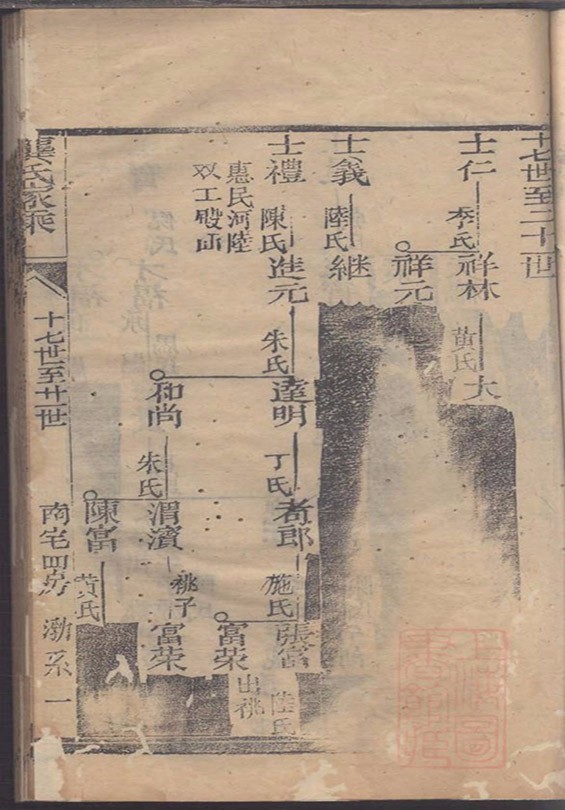 十七世至二十一世
士仁
李氏
祥林
黄氏
大
祥元
士義
陸氏
継
士禮
陳氏
惠民河陸
进元
朱氏
達明
丁氏
者郎
施氏
張富
陸氏
富荣
出祧
和尚
朱氏
渭濱
祧子
富荣
陳富
黄氏
龔氏家乘
十七世至廿一世
南宅四房
渤系一